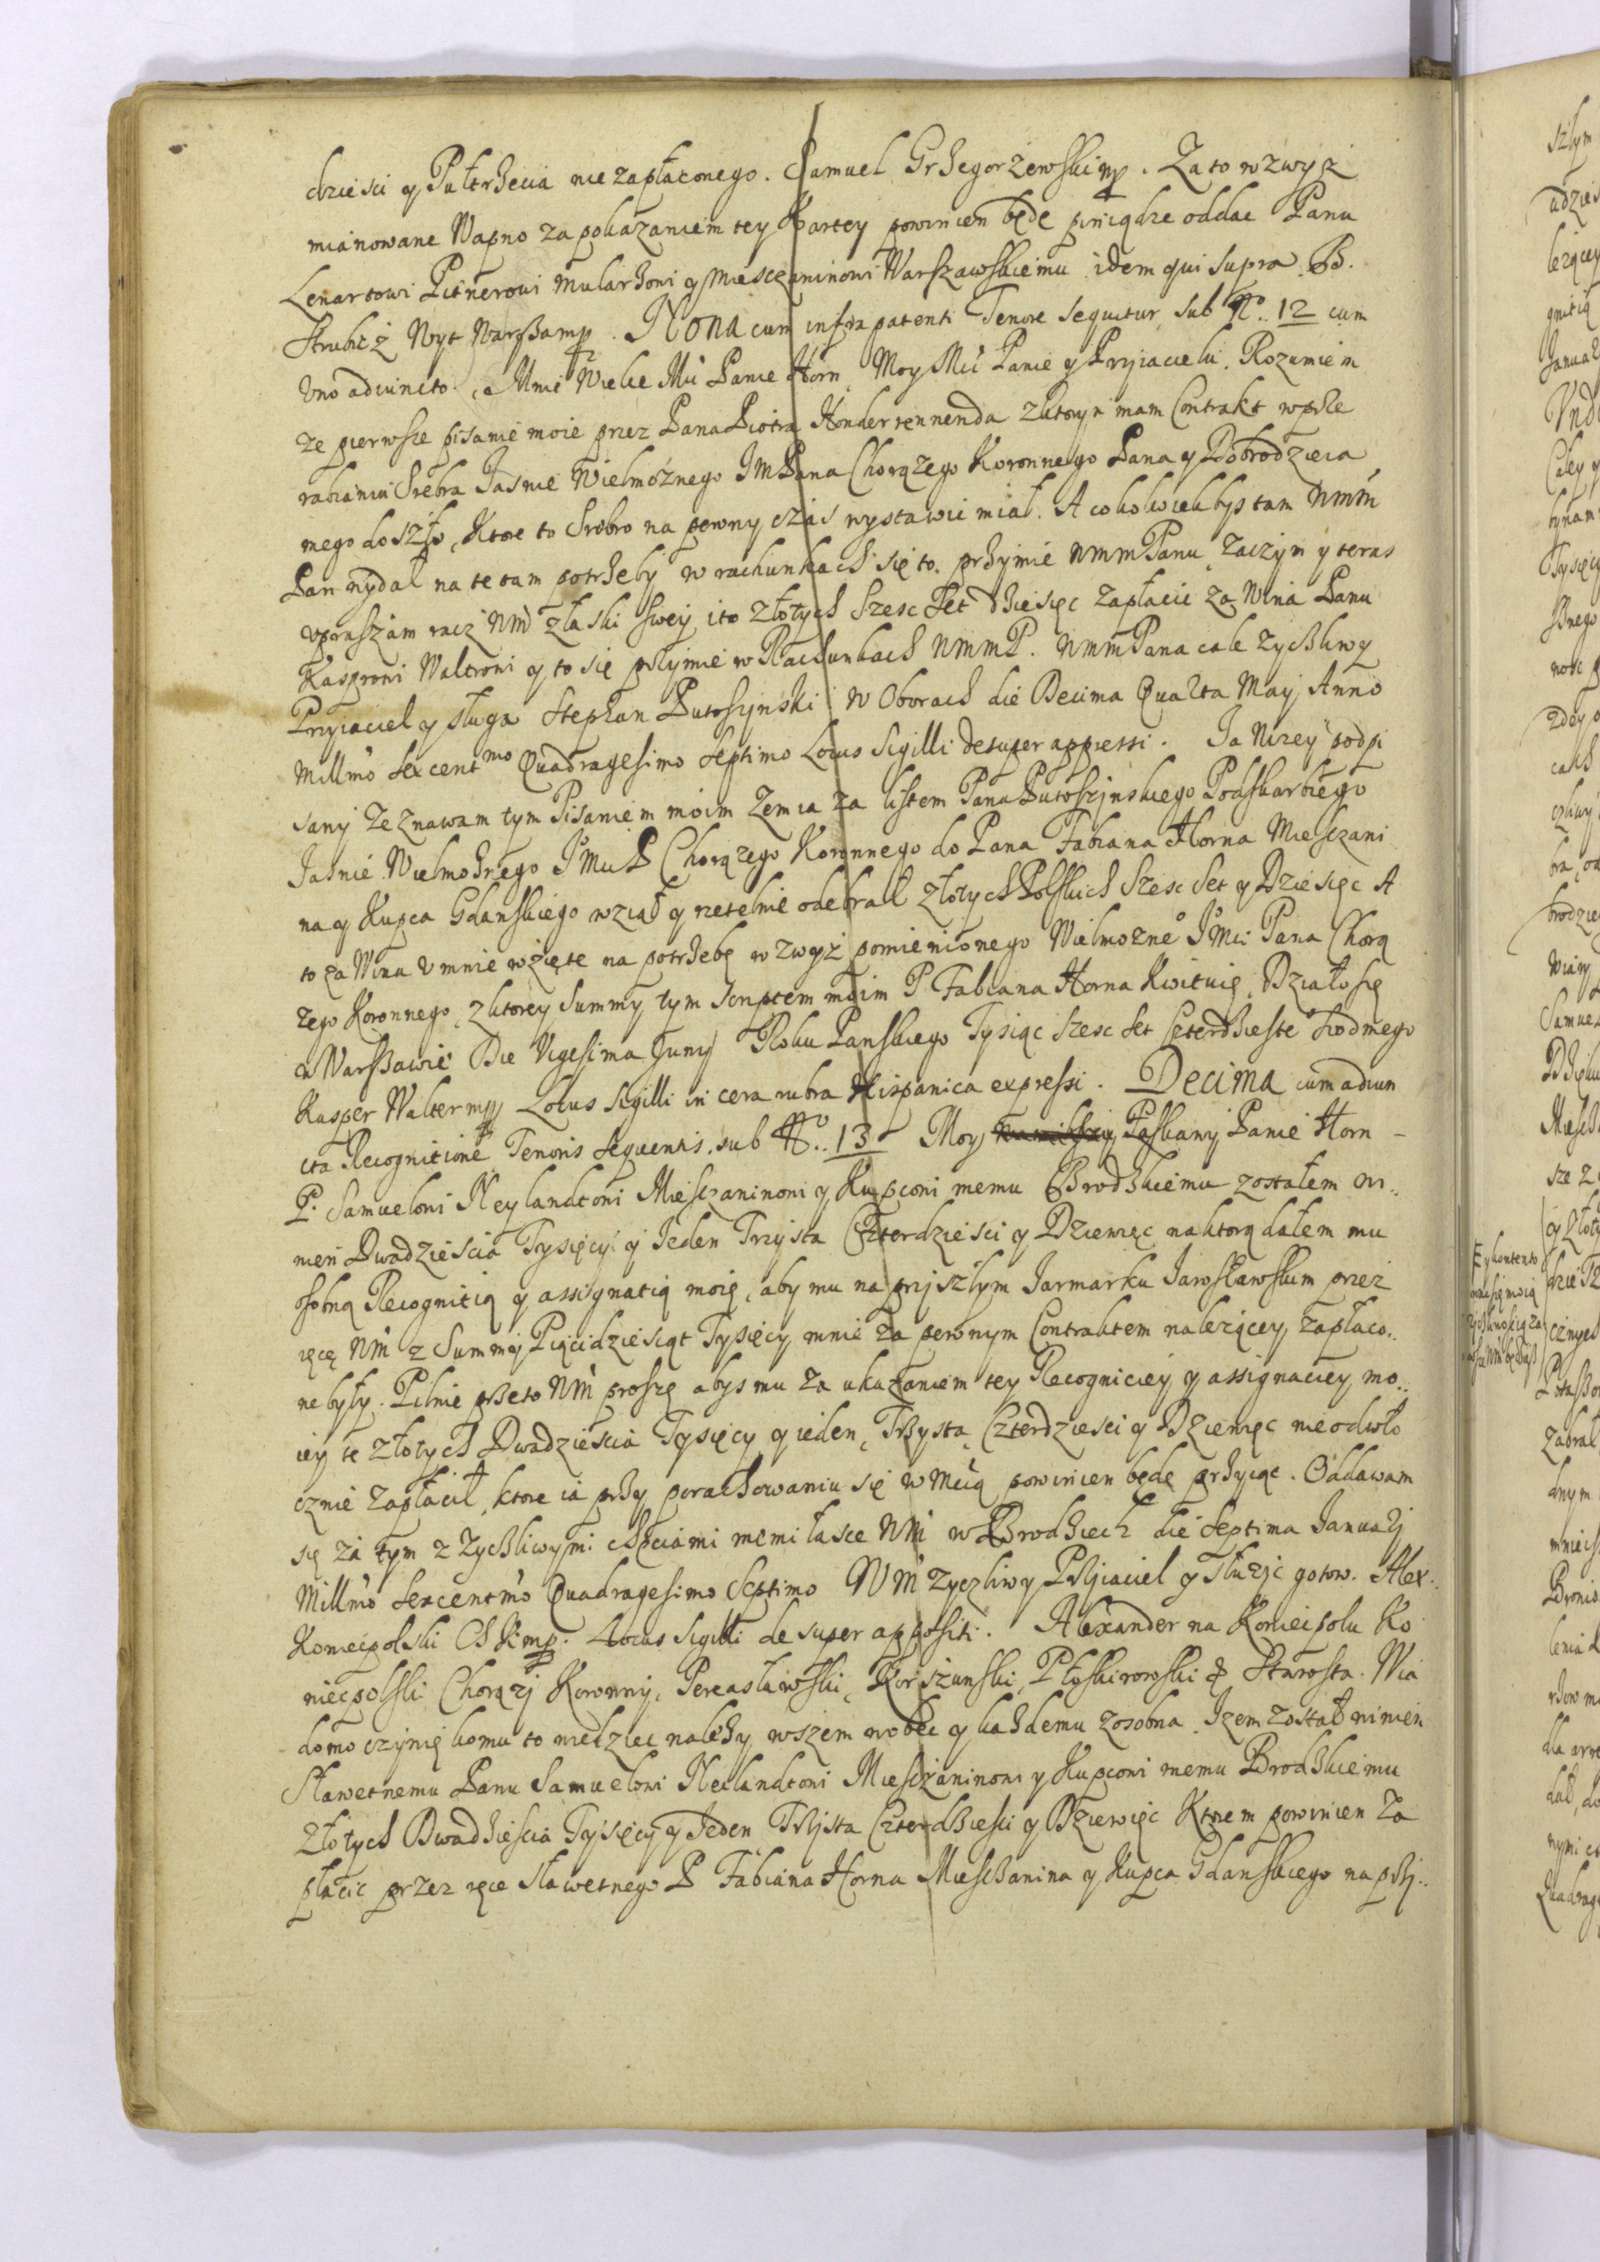 dziesci y Pułtrzecia nie zapłaconego. Samuel Grzegorzewski mp. Za to wzwysz
mianowane Wapno za pokazaniem tey Kartey powinien będe pieniądze oddac Panu
Lenartowi Pitnerowi Mularzowi y Miesczaninowi Warszawskiemu idem qui supra B.
Strubicz Woyt Warszamp. Nona cum infra patenti Tenore sequitur sub No. 12 cum
Uno adiuncto, a Mnie Wielce Mci Panie Horn, Moy Mci Panie y Przyiacielu. Rozumiem
ze pierwsze pisanie moie przez Pana Piotra z ktorym mam Contrakt
rabianiu Srebra Jasnie Wielmoznego JM Pana Chorązego Koronnego Pana y Dobrodzieia
mego doszło, Ktore to Srebro na pewny czas wystawic miał. A cokolwiek bys tam WMM
Pan wydał na te tam potrzeby w rachunkach się to przyimie WMMPanu, zaczym y teras
upraszam racz WM z łaski swey ito złotych szesc set dziesięc zapłacic za Wina Panu
Kasprowi Waltrowi y to się przyimie w Rachunkach WMMP. WMMPana cale zyczliwy
Przyiaciel y sługa Stephan W Oborach die Decima Quarta May Anno
Millmo Sexcentmo Quadragesimo Septimo Locus Sigilli desuper appressi. Ja Nizey podpi
sany zeznawam tym Pisaniem moim zem ia za listem Pana Podskarbiego
Jasnie Wielmoznego JMci P Chorązego Koronnego do Pana Fabiana Horna Miesczani
na y Kupca Gdanskiego wziął y rzetelnie odebrał złotych Polskich szesc set y Dziesięc A
to za Wina u mnie wzięte na potrzebę wzwyz pomienionego Wielmozne JMci Pana Chorą
zego Koronnego, z ktorey Summy tym scriptem moim P Fabiana Horna Kwituię. Działo się
w Warszawie Die Vigesima Juny Roku Panskiego Tysiąc szesc set Czterdzieste siodmego
Kasper Walter mp Locus Sigilli in cera rubra Hispanica expressi. Decima cum adiun
cta Recognitione Tenoris sequentis sub No. 13 Moy Łaskawy Panie Horn -
P. Samuelowi Neylandtowi Miesczaninowi y Kupcowi memu Brodzkiemu zostałem wi..
nien Dwadziescia Tysięcy y Jeden Trzysta Czterdziesci y Dziewięc na ktorą dałem mu
osobną Recognitią y assignatią moię, aby mu na przyszłym Jarmarku Jarosławskim przez
ręcę WM z Summy Pięcidziesiąt Tysięcy mnie za pewnym Contraktem nalezącey zapłaco..
ne były. Pilnie przeto WM proszę abys mu za ukazaniem tey Recogniciey y assignaciey mo..
iey te złotych Dwadziescia Tysięcy y ieden, Trzysta, Czterdziesci y Dziewięc nieodwło
cznie zapłacił, ktore ia przy porachowaniu się w Mcią powinien będę przyiąc. Oddawam
się za tym z zyczliwymi chęciami memi łasce WM w Brodziech die Septima January
Millmo Sexcentmo Quadragesimo Septimo WM zyczliwy Przyiaciel y słuzyc gotow. Alex..
Koniecpolski Ch K mp. Locus sigilli desuper appositi. Alexander na Koniecpolu Ko
niecpolski Chorązy Koronny, Pereasławski, Korszunski, Płoskirowski & Starosta. Wia
domo czynię komu to wiedziec nalezy wszem wobec y kazdemu zosobna, Izem został winien
Sławetnemu Panu Samuelowi Neilandtowi Miesczaninowi y Kupcowi memu Brodzkiemu
złotych Dwadziescia Tysięcy y Jeden Trzysta Czterdziesci y Dziewięc Ktorem powinien za
płacic przez ręce sławetnego P Fabiana Horna Miesczanina y Kupca Gdanskiego na przy..